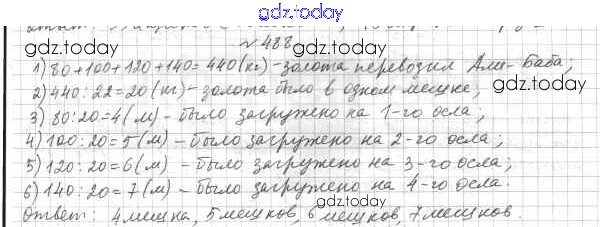 gdz.today
№ 488
gdz.today gdz.today
1) 80+100+120+140=440(кг)-золота перевозил Али-Баба;
2) 440:22=20(кг)-золота было в одном мешке;
3) 80:20=4(м)-было загружено на 1-го осла;
4) 100:20=5(м)-было загружено на 2-го осла;
5) 120:20=6(м)-было загружено на 3-го осла;
6) 140:20=7(м)-было загружено на 4-го осла.
Ответ: 4 мешка, 5 мешков, 6 мешков, 7 мешков.
gdz.today gdz.today
gdz.today